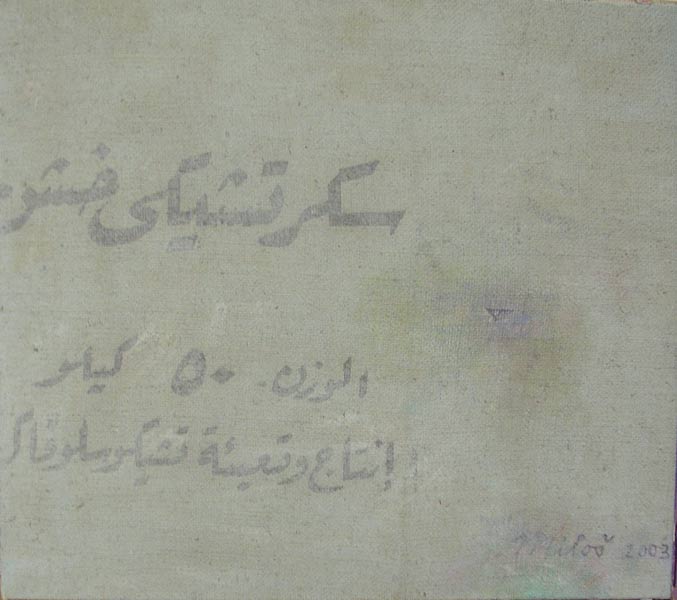 سكر تشيكى خشو
الوزن ٥٠ كيلو
إنتاج وتعبئة تشيكوسلوفاك
Miloš 2003